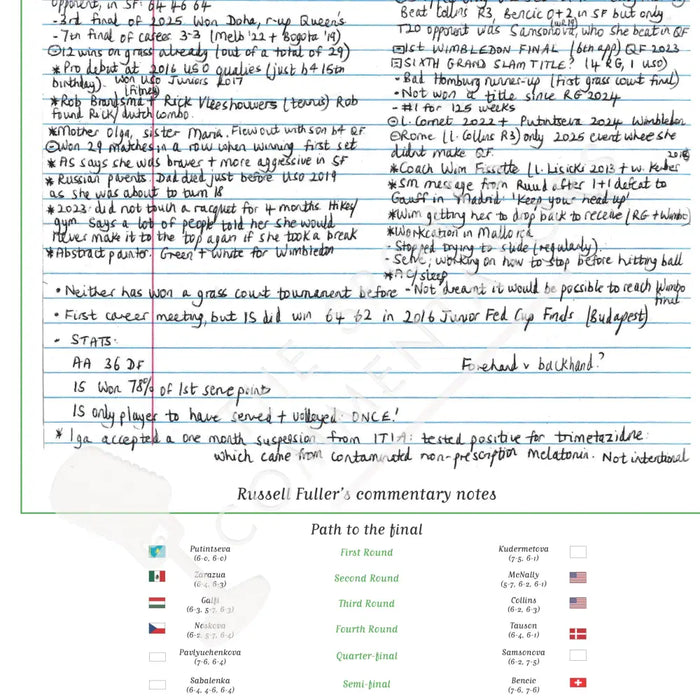 opponent, in SF: 64 46 64
- 3rd final of 2025. Won Doha, r-up Queen's
- 7th final of career 3-3 (Melb '22 + Bogota '19)
12 wins on grass already (out of a total of 29)
* Pro debut at 2016 USO qualies (just b4 15th
birthday). Won USO Juniors 2017
(Fitness)
* Rob Brandsma + Rick Vleeshouwers (tennis) Rob
found Rick/dutch combo.
* Mother Olga, sister Maria. Flew out with son b4 QF
Won 29 matches in a row when winning first set
* AS says she was braver + more aggressive in SF
* Russian parents. Dad died just before USO 2019
as she was about to turn 18
* 2023: did not touch a racquet for 4 months. Hike/
gym. Says a lot of people told her she would
never make it to the top again if she took a break
* Abstract painter. Green + White for Wimbledon
Beat Collins R3, Bencic 0+2 in SF but only
T20 opponent was Samsonova, who she beat in QF
(WR19)
1st WIMBLEDON FINAL (6th app) QF 2023
SIXTH GRAND SLAM TITLE? (4 RG, 1 USO)
- Bad Homburg runner-up (first grass court final)
- Not won a title since RG 2024
- #1 for 125 weeks
L. Cornet 2022 + Putintseva 2024 Wimbledon
Rome (L. Collins R3) only 2025 event where she
didn't make QF.
2018
* Coach Wim Fissette (L. Lisicki 2013 + w. Kerber
* SM message from Ruud after 1+1 defeat to
Gauff in Madrid 'Keep your head up'
* Wim getting her to drop back to receive (RG + Wimbo)
* Workcation in Mallorca
- Stopped trying to slide (regularly).
- Serve; working on how to stop before hitting ball
* AC/sleep
- Not dreamt it would be possible to reach Wimbo
final
• Neither has won a grass court tournament before
• First career meeting, but IS did win 64 62 in 2016 Junior Fed Cup Finals (Budapest)
• STATS:
AA 36 DF
Forehand v backhand?
IS Won 78% of 1st serve points
IS only player to have served + volleyed: ONCE!
* Iga accepted a one month suspension from ITIA: tested positive for trimetazidine:
which came from contaminated non-prescription melatonin. Not intentional
Russell Fuller's commentary notes
Path to the final
Putintseva First Round Kudermetova
(6-0, 6-0) (7-5, 6-1)
Zarazua Second Round McNally
(6-4, 6-3) (5-7, 6-2, 6-1)
Galfi Third Round Collins
(6-3, 5-7, 6-3) (6-2, 6-3)
Noskova Fourth Round Tauson
(6-2, 5-7, 6-4) (6-4, 6-1)
Pavlyuchenkova Quarter-final Samsonova
(7-6, 6-4) (6-2, 7-5)
Sabalenka Semi-final Bencic
(6-4, 4-6, 6-4) (7-6, 7-6)